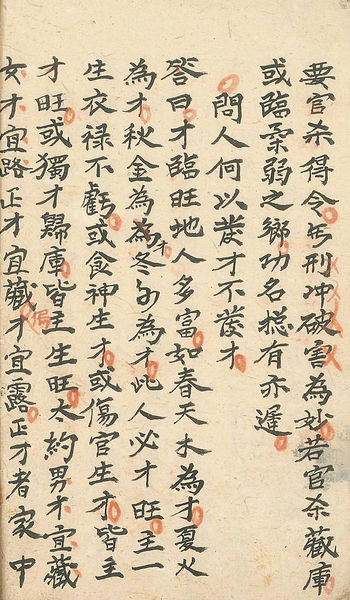 要官杀得令無刑冲破害為妙若官杀藏庫
或臨柔弱之鄉功名摠有亦遲
問人何以發才不發才
答曰才臨旺地人多富如春天木為才夏火
為才秋金為才冬水為才此人必才旺主一
生衣禄不虧或食神生才或傷官生才皆主
才旺或獨才歸庫皆主生旺大約男才宜藏
女才宜露正才宜藏才宜露正才者家中